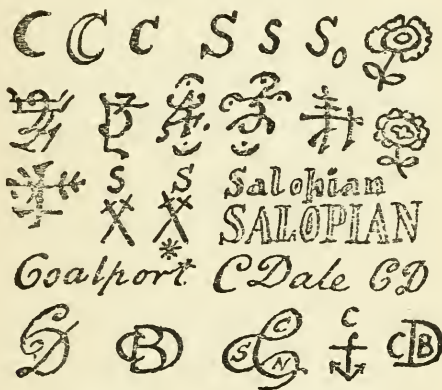 C C C S S So
S S Salopian
SALOPIAN
Coalport CDale CD
CD CBD CSN C CBD